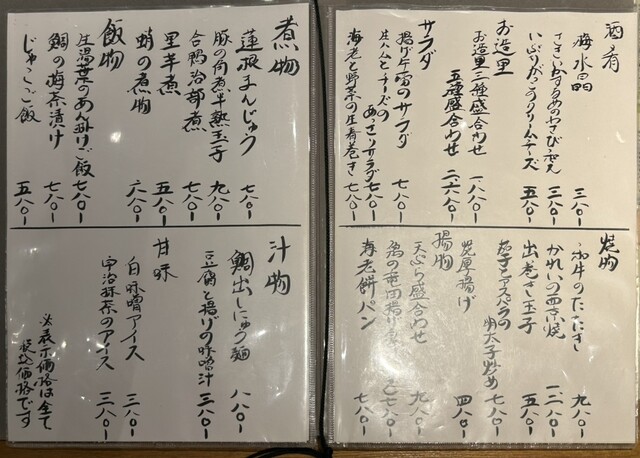 酒肴
梅水晶 三八〇-
さきいかするめのわさび和え 三八〇-
いぶりがっこクリームチーズ 五八〇-
お造里
お造里三種盛合わせ 一八八〇-
五種盛合わせ 二六八〇-
サラダ
揚げ牛蒡のサラダ 七八〇-
生ハムとチーズのあっさりサラダ 七八〇-
海老と野菜の生春巻き 七八〇-
焼物
和牛のたたき 九八〇-
かれいの西京焼 一二八〇-
出し巻き玉子 五八〇-
茄子とアスパラの明太子炒め 七八〇-
炙厚揚げ 四八〇-
揚物
天ぷら盛合わせ 九八〇-
魚の竜田揚げ 七八〇-
海老餅パン 七八〇-
煮物
蓮根まんじゅう 七八〇-
豚の角煮半熟玉子 九八〇-
合鴨治部煮 七八〇-
里芋煮 五八〇-
蛸の煮物 六八〇-
飯物
生湯葉のあん掛けご飯 七八〇-
鯛の海茶漬け 七八〇-
じゃこご飯 五八〇-
汁物
鯛出しにゅう麺 八八〇-
豆腐と揚げの味噌汁 三八〇-
甘味
白味噌アイス 三八〇-
宇治抹茶のアイス 三八〇-
※表示価格は全て
税込価格です